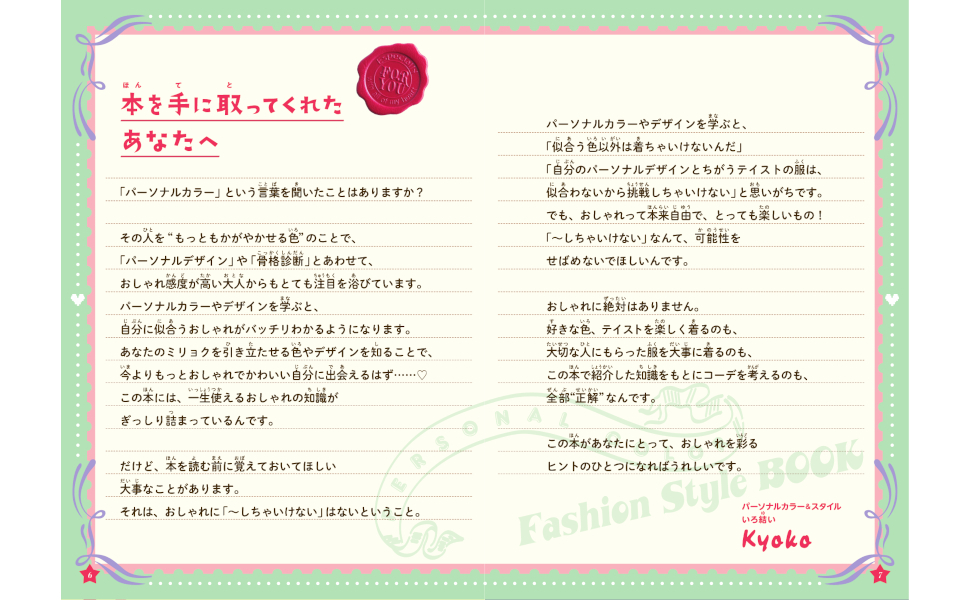 本を手に取ってくれた
あなたへ
FOR
YOU
「パーソナルカラー」という言葉を聞いたことはありますか？
その人を“もっともかがやかせる色”のことで、
「パーソナルデザイン」や「骨格診断」とあわせて、
おしゃれ感度が高い大人からもとても注目を浴びています。
パーソナルカラーやデザインを学ぶと、
自分に似合うおしゃれがバッチリわかるようになります。
あなたのミリョクを引き立たせる色やデザインを知ることで、
今よりもっとおしゃれでかわいい自分に出会えるはず……♡
この本には、一生使えるおしゃれの知識が
ぎっしり詰まっているんです。
だけど、本を読む前に覚えておいてほしい
大事なことがあります。
それは、おしゃれに「〜しちゃいけない」はないということ。
6
パーソナルカラーやデザインを学ぶと、
「似合う色以外は着ちゃいけないんだ」
「自分のパーソナルデザインとちがうテイストの服は、
似合わないから挑戦しちゃいけない」と思いがちです。
でも、おしゃれって本来自由で、とっても楽しいもの！
「〜しちゃいけない」なんて、可能性を
せばめないでほしいんです。
おしゃれに絶対はありません。
好きな色、テイストを楽しく着るのも、
大切な人にもらった服を大事に着るのも、
この本で紹介した知識をもとにコーデを考えるのも、
全部“正解”なんです。
この本があなたにとって、おしゃれを彩る
ヒントのひとつになればうれしいです。
PERSONAL COLOR
Fashion Style BOOK
パーソナルカラー＆スタイル
いろ結い
Kyoko
7